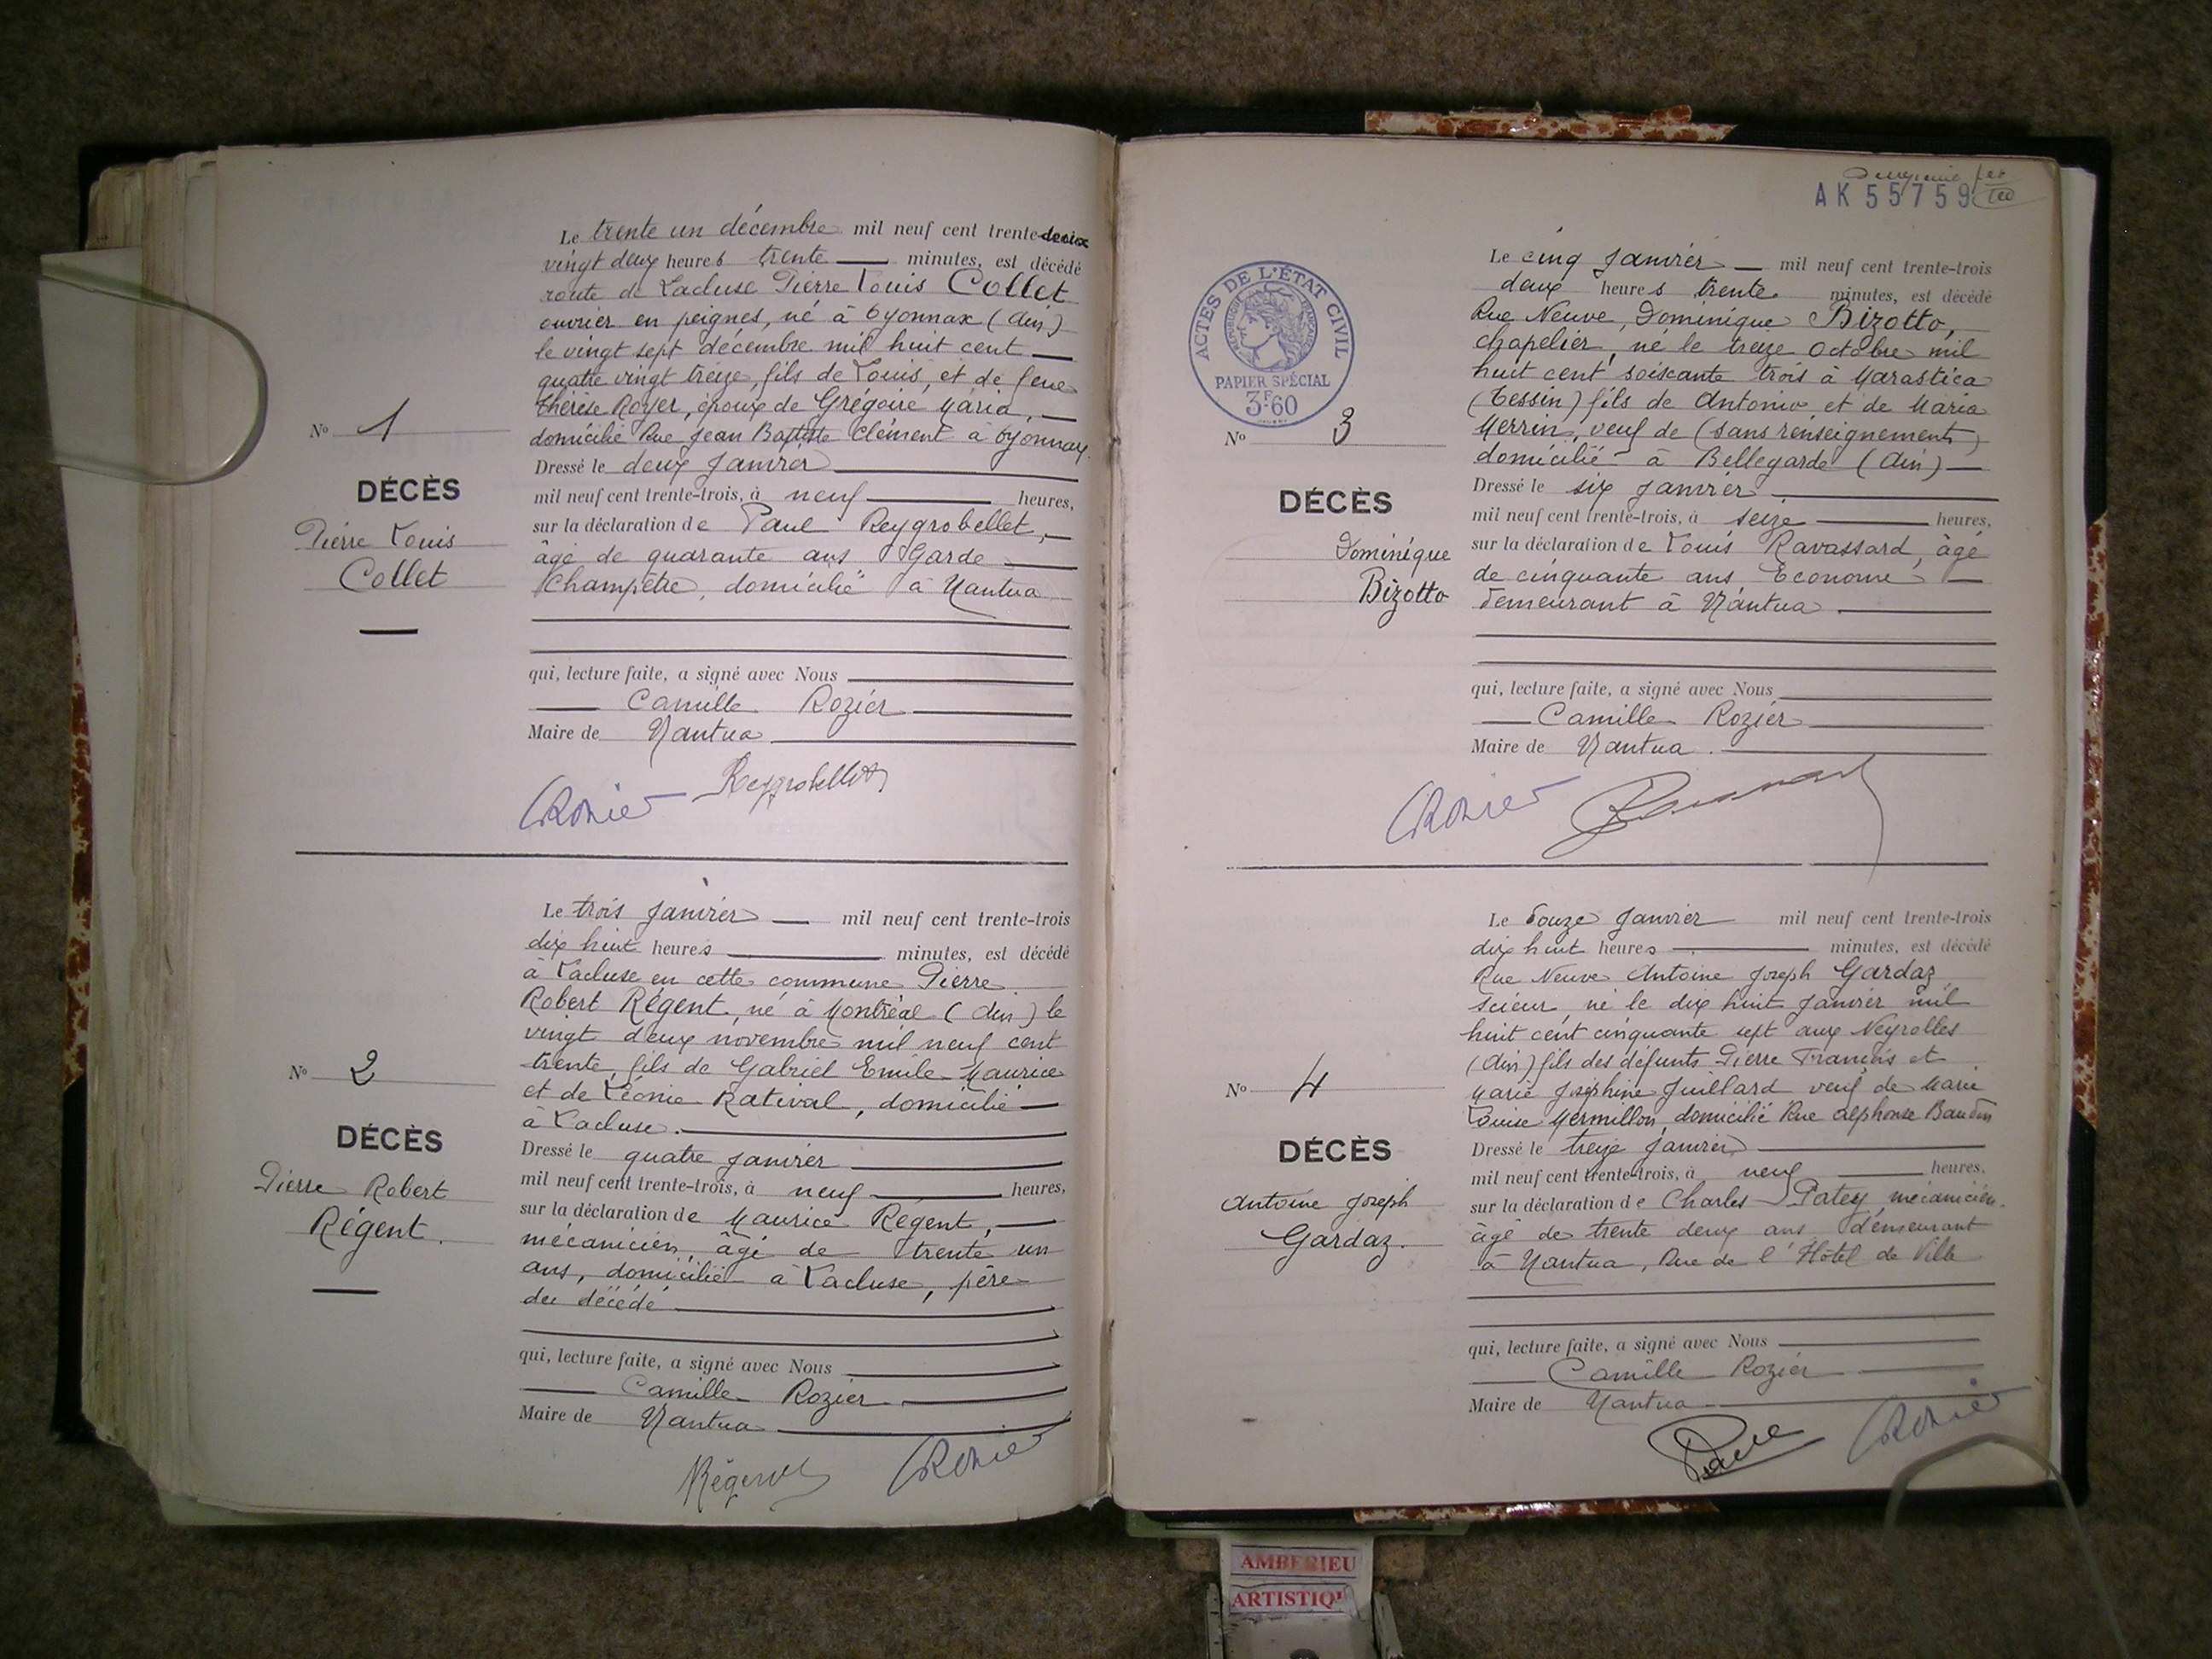 Le trente un décembre mil neuf cent trente-deux
vingt deux heures trente minutes, est décédé
route de Lacluse Pierre Louis Collet
ouvrier en peignes, né à Oyonnax (Ain)
le vingt sept décembre mil huit cent
quatre vingt treize, fils de Louis et de feue
Thérèse Royer, époux de Grégoire Maria,
domicilié Rue Jean Baptiste Clément à Oyonnax.
Nº 1
Dressé le deux Janvier
DÉCÈS
mil neuf cent trente-trois, à neuf heures,
Pierre Louis
Collet
sur la déclaration de Paul Reygrobellet,
âgé de quarante ans Garde
Champêtre, domicilié à Nantua
qui, lecture faite, a signé avec Nous
Camille Rozier
Maire de Nantua
CRozier Reygrobellet
Le trois Janvier mil neuf cent trente-trois
dix huit heures minutes, est décédé
à Lacluse en cette commune Pierre
Robert Régent, né à Montréal (Ain) le
vingt deux novembre mil neuf cent
trente, fils de Gabriel Emile Maurice
et de Léonie Ratival, domicilié
à Lacluse.
Nº 2
DÉCÈS
Pierre Robert
Régent.
Dressé le quatre Janvier
mil neuf cent trente-trois, à neuf heures,
sur la déclaration de Maurice Régent,
mécanicien, âgé de trente un
ans, domicilié à Lacluse, père
du décédé
qui, lecture faite, a signé avec Nous
Camille Rozier
Maire de Nantua
Régent CRozier
AK 55759
ACTES DE L'ÉTAT CIVIL
RÉPUBLIQUE FRANÇAISE
PAPIER SPÉCIAL
3F.60
Le cinq Janvier mil neuf cent trente-trois
deux heures trente minutes, est décédé
Rue Neuve, Dominique Bizotto,
chapelier, né le treize Octobre mil
huit cent soixante trois à Marastica
(Tessin) fils de Antonio et de Maria
Merrin, veuf de (sans renseignements)
domicilié à Bellegarde (Ain)
Nº 3
DÉCÈS
Dominique
Bizotto
Dressé le six Janvier
mil neuf cent trente-trois, à seize heures,
sur la déclaration de Louis Ravassard, âgé
de cinquante ans, Econome
demeurant à Nantua
qui, lecture faite, a signé avec Nous
Camille Rozier
Maire de Nantua.
CRozier
Le douze Janvier mil neuf cent trente-trois
dix huit heures minutes, est décédé
Rue Neuve Antoine Joseph Gardaz
scieur, né le dix huit Janvier mil
huit cent cinquante sept aux Neyrolles
(Ain) fils des défunts Pierre François et
Marie Joséphine Juillard veuf de Marie
Louise Mermillon, domicilié Rue Alphonse Baudin
Nº 4
DÉCÈS
Antoine Joseph
Gardaz.
Dressé le treize Janvier
mil neuf cent trente-trois, à neuf heures,
sur la déclaration de Charles Patey, mécanicien
âgé de trente deux ans demeurant
à Nantua, Rue de l'Hôtel de Ville
qui, lecture faite, a signé avec Nous
Camille Rozier
Maire de Nantua
CRozier
AMBERIEU
ARTISTIQU